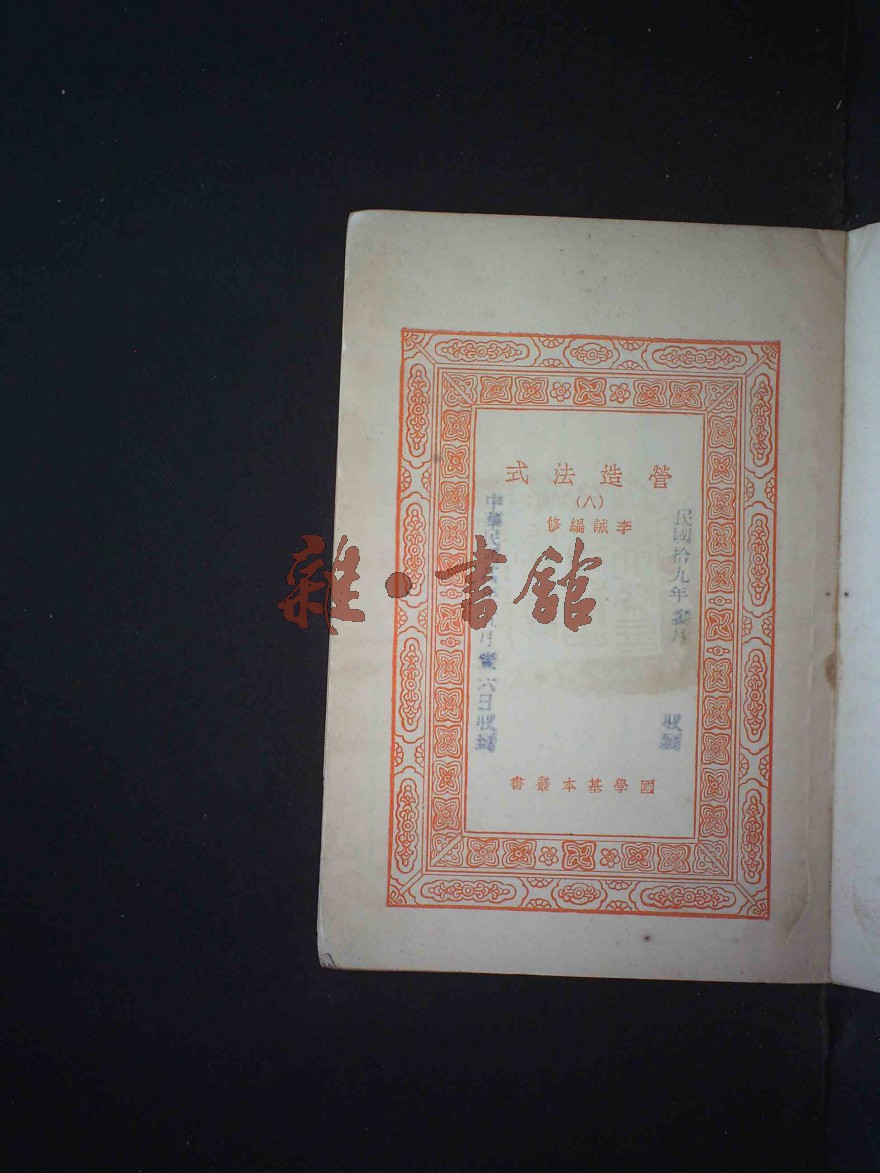 營造法式
(八)
李誡編修
國學基本叢書
民國拾九年 月
收到
中華民國
月 六日收到
雜·書館